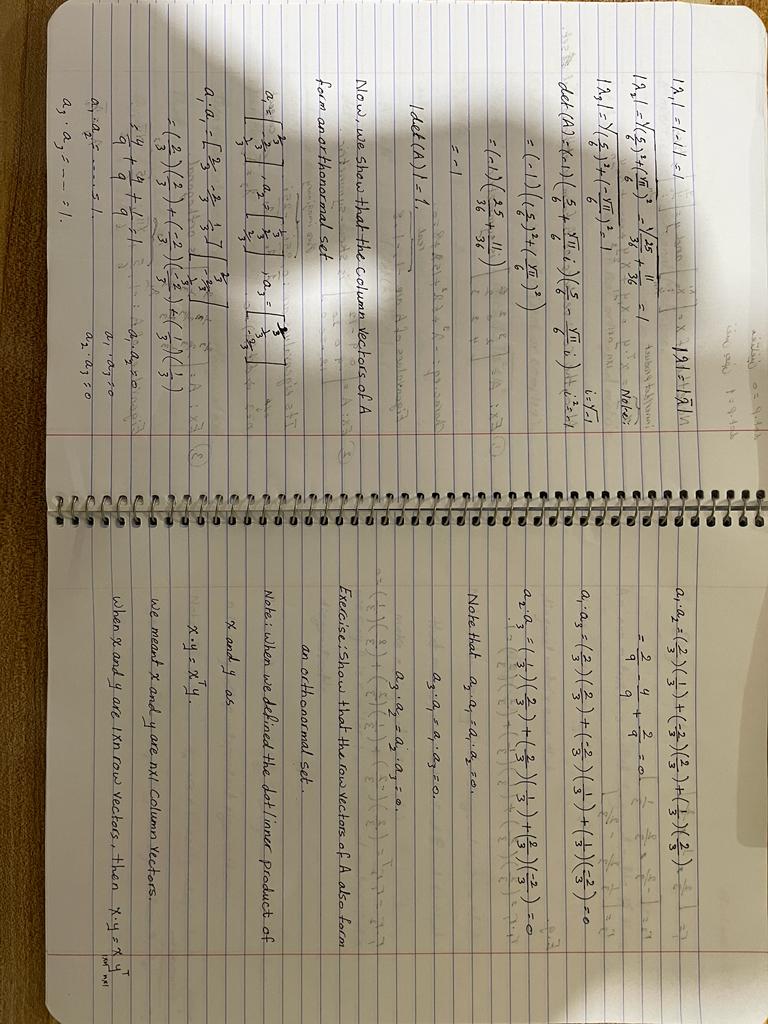 |λ₁| = |-1| = 1     |λ| = |λ̄|
|λ₂| = √((5/6)² + (√11/6)²) = √(25/36 + 11/36) = 1
Note:
|λ₃| = √((5/6)² + (-√11/6)²) = 1
i = √-1
det(A) = (-1)(5/6 + √11/6 i)(5/6 - √11/6 i), i² = -1
= (-1)((5/6)² + (√11/6)²)
= (-1)(25/36 + 11/36)
= -1
|det(A)| = 1.
Now, we show that the column vectors of A
form an orthonormal set
a₁ = [2/3 -2/3 1/3], a₂ = [1/3 2/3 2/3], a₃ = [2/3 1/3 -2/3]
a₁·a₁ = [2/3 -2/3 1/3] [2/3 -2/3 1/3]
= (2/3)(2/3) + (-2/3)(-2/3) + (1/3)(1/3)
= 4/9 + 4/9 + 1/9 = 1     a₁·a₂ = 0
a₁·a₃ = 0
a₂·a₂ = ..... = 1.     a₂·a₃ = 0
a₃·a₃ = --- = 1.
a₁·a₂ = (2/3)(1/3) + (-2/3)(2/3) + (1/3)(2/3)
= 2/9 - 4/9 + 2/9 = 0.
a₁·a₃ = (2/3)(2/3) + (-2/3)(1/3) + (1/3)(-2/3) = 0
a₂·a₃ = (1/3)(2/3) + (2/3)(1/3) + (2/3)(-2/3) = 0
Note that a₂·a₁ = a₁·a₂ = 0.
a₃·a₁ = a₁·a₃ = 0.
a₃·a₂ = a₂·a₃ = 0.
Exercise: Show that the row vectors of A also form
an orthonormal set.
Note: When we defined the dot/inner product of
x and y as
x·y = xᵀy.
we meant x and y are nx1 column vectors.
When x and y are 1xn row vectors, then x·y = x yᵀ
1xn nx1